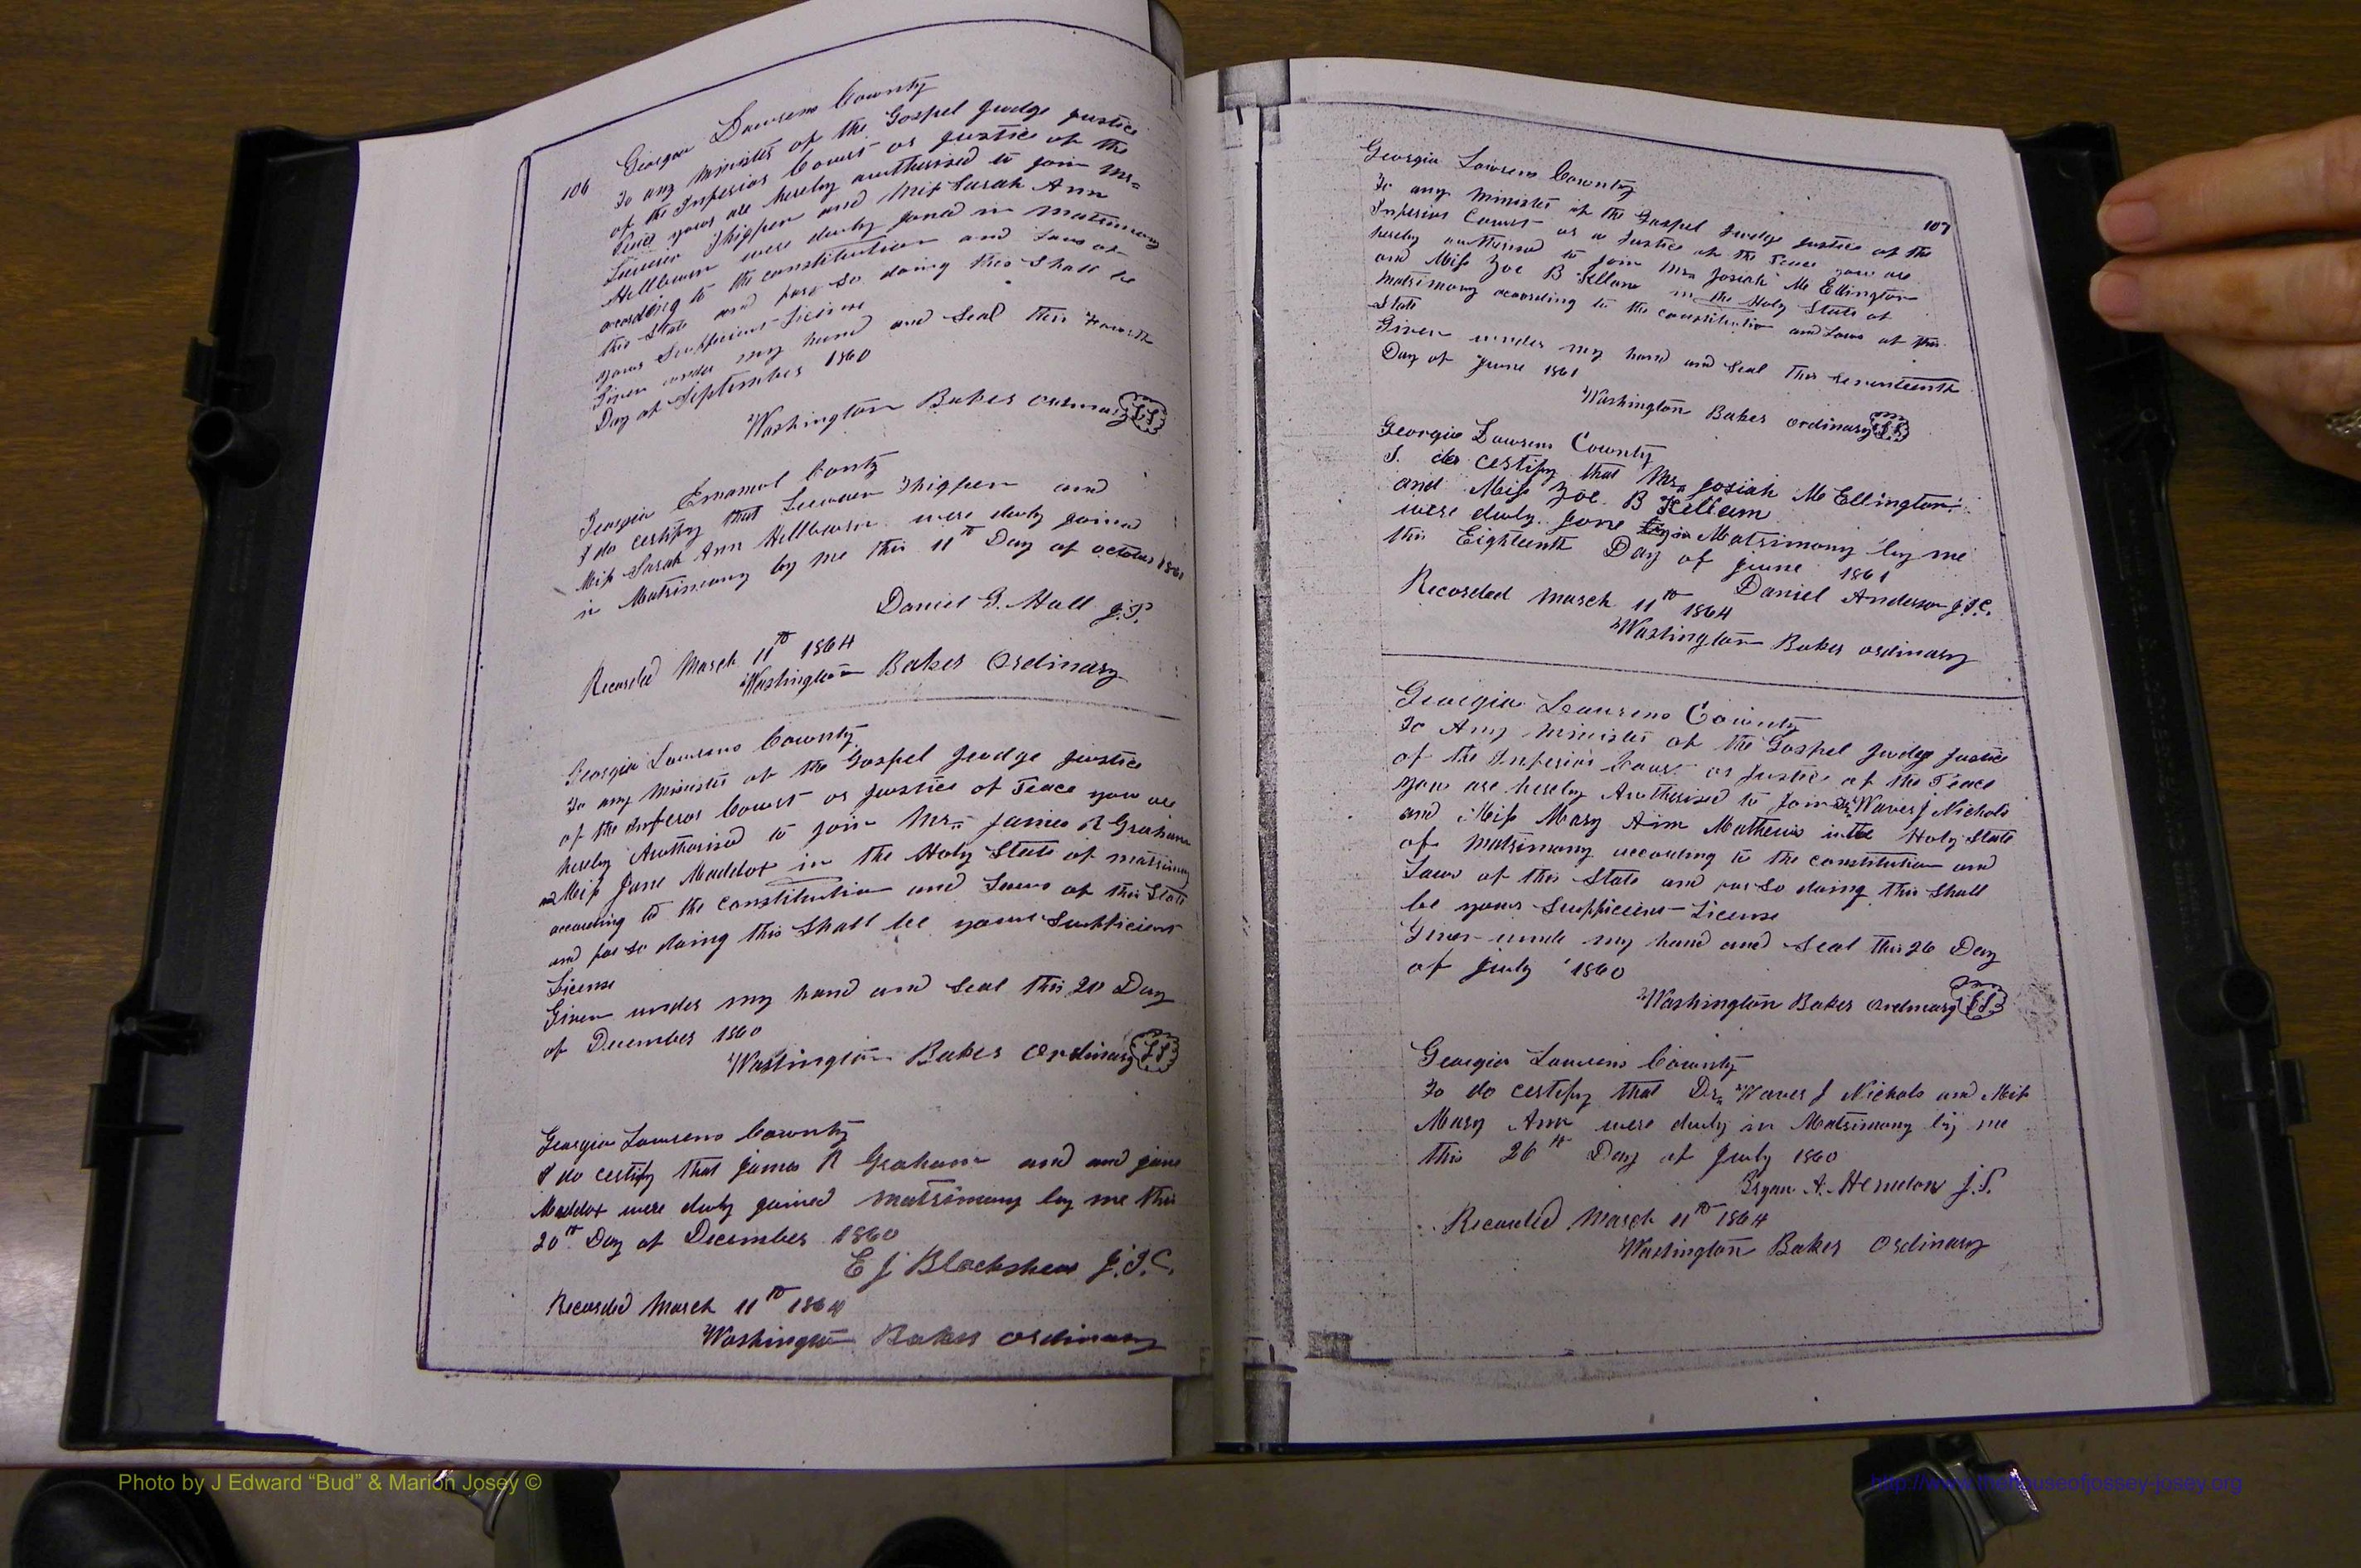 106
Georgia Laurens County
To any Minister of the Gospel Judge Justice
of the Inferior Court or Justice of the
Peace you are hereby authorised to join Mr=
Thigpen and Miss Sarah Ann
Hillburn were duly joined in matrimony
according to the constitution and Laws of
this State and for so doing this Shall be
your Sufficient License
Given under my hand and Seal this Fourth
Day of September 1860
Washington Baker ordinary LS
Georgia Emanuel County
I do certify that Thigpen and
Miss Sarah Ann Hillburn were duly joined
in Matrimony by me this 11th Day of October
Daniel G. Hall J.P.
Recorded March 11th 1864
Washington Baker Ordinary
Georgia Laurens County
To any Minister of the Gospel Judge Justice
of the Inferor Court or Justice of Peace you are
hereby Authorised to join Mr= James R Graham
and Miss Jane Maddox in the Holy State of matrimony
according to the constitution and Laws of this State
and for so doing this Shall be your Sufficient
License
Given under my hand and Seal this 20 Day
of December 1860
Washington Baker Ordinary LS
Georgia Laurens County
I do certify that James R Graham and and Jane
Maddox were duly joined matrimony by me this
20th Day of December 1860
E J Blackshear J.I.C.
Recorded March 11th 1864
Washington Baker ordinary
107
Georgia Laurens County
To any Minister of the Gospel Judge Justice of the
Inferior Court or a Justice of the Peace you are
hereby authorised to join Mr= Josiah M Ellington
and Miss Zoe B Kellam in the Holy State of
Matrimony according to the constitution and Laws of this
State
Given under my hand and Seal this Seventeenth
Day of June 1861
Washington Baker ordinary LS
Georgia Laurens County
I do certify that Mr= Josiah M Ellington
and Miss Zoe B Kellam
were duly Jone in Matrimony by me
this Eighteenth Day of June 1861
Daniel Anderson J.I.C.
Recorded March 11th 1864
Washington Baker ordinary
Georgia Laurens County
To Any Minister of the Gospel Judge Justice
of the Inferior Court or Justice of the Peace
you are hereby Authorised to Join J Nichols
and Miss Mary Ann Mathews in the Holy State
of Matrimony according to the constitution and
Laws of this State and for So doing this Shall
be your Sufficient License
Given unde my hand and Seal this 26 Day
of July 1860
Washington Baker Ordinary LS
Georgia Laurens County
To do certify that Dr= J Nichols and Miss
Mary Ann were duly in Matrimony by me
this 26th Day of July 1860
Bryan A. Herndon J.P.
Recorded March 11th 1864
Washington Baker Ordinary
Photo by J Edward “Bud” & Marion Josey ©
http://www.thehouseofjossey-josey.org